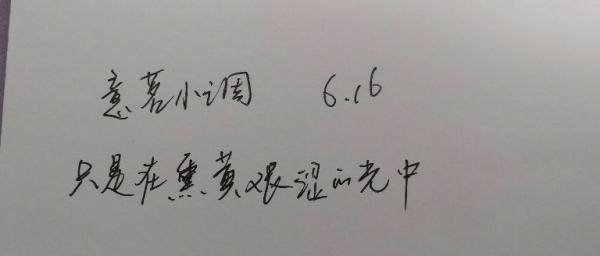 意茗小调 6.16
只是在焦黄艰涩的光中